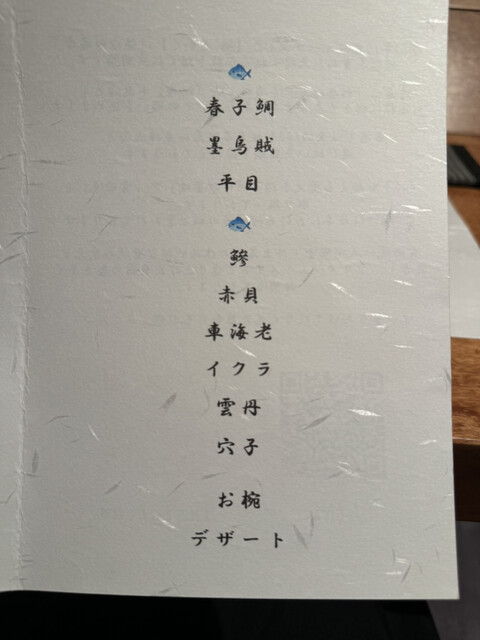 春子鯛
墨烏賊
平目
鰺
赤貝
車海老
イクラ
雲丹
穴子
お椀
デザート